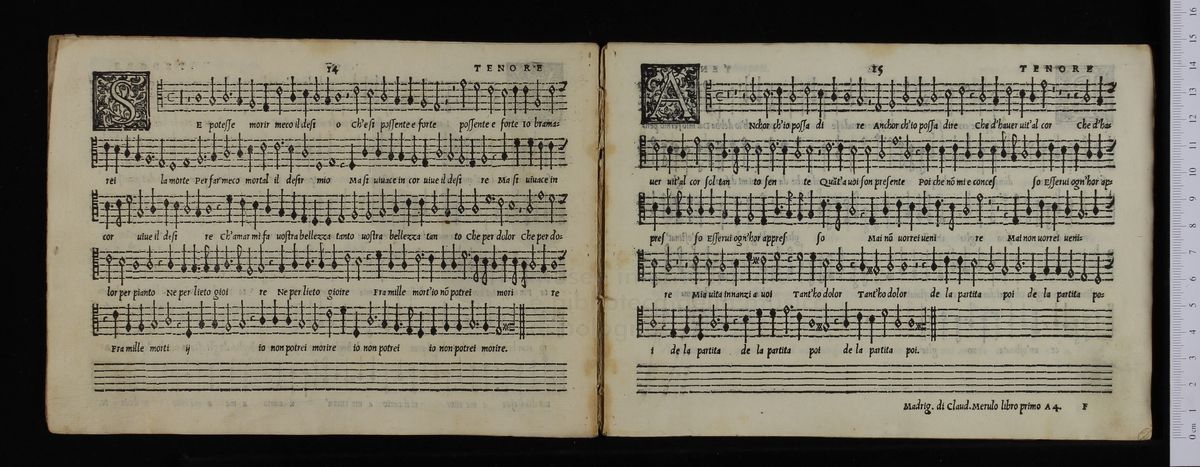 14 TENORE
SE potesse morir meco il desi o Ch'e si possente e forte possente e forte io brama=
rei la morte Per far meco mortal il desir mio Ma si viuace in cor viue il desi re Ma si viuace in
cor viue il desi re Ch'amar mi fa vostra bellezza tanto vostra bellezza tan to Che per dolor Che per do=
lor per pianto Ne per lieto gioi re Ne per lieto gioire Fra mille mort'io nõ potrei mori re
Fra mille morti ij io non potrei morire io non potrei io non potrei morire.
15 TENORE
ANchor ch'io possa di re Anchor ch'io possa dire Che d'hauer vit'al cor Che d'ha=
uer vit'al cor sol tan to sen te Quãt'a voi son presente Poi che nõ mi e conces so Esserui ogn'hor ap=
pres so Esserui ogn'hor appres so Mai nõ vorrei veni re Mai non vorrei veni=
re Mia vita innanzi a voi Tant'ho dolor Tant'ho dolor de la partita poi de la partita po=
i de la partita de la partita poi de la partita poi.
Madrig. di Claud. Merulo libro primo A 4. F